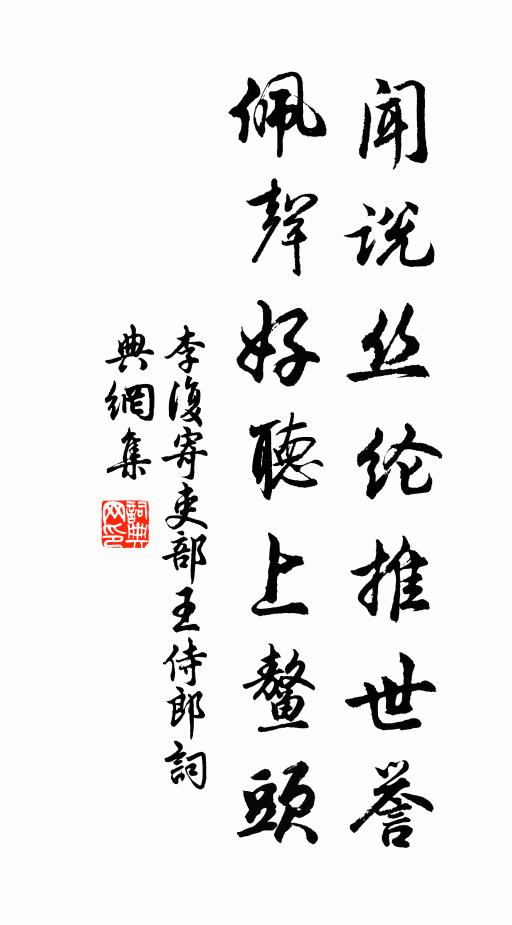 闻说丝纶推世誉
佩聲好聽上鳌頭
李復寄吏部王侍郎詞
典網集
詞典网印